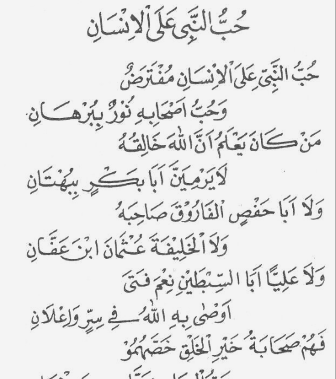 حُبُّ النَّبِيِّ عَلَى الْاِنْسَانِ
حُبُّ النَّبِيِّ عَلَى الْاِنْسَانِ مُفْتَرَضٌ
وَحُبُّ اَصْحَابِهِ نُوْرٌ بِبُرْهَانِ
مَنْ كَانَ يَعْلَمُ اَنَّ اللهَ خَالِقُهُ
لَا يَرْمِيَنَّ اَبَا بَكْرٍ بِبُهْتَانِ
وَلَا اَبَا حَفْصٍ الْفَارُوْقَ صَاحِبَهُ
وَلَا الْخَلِيْفَةَ عُثْمَانَ ابْنَ عَفَّانِ
وَلَا عَلِيًّا اَبَا السِّبْطَيْنِ نِعْمَ فَتَى
اَوْصَى بِهِ اللهُ فِي سِرٍّ وَاِعْلَانِ
فَهُمْ صَحَابَةُ خَيْرِ الْخَلْقِ خَصَّهُمُوْ